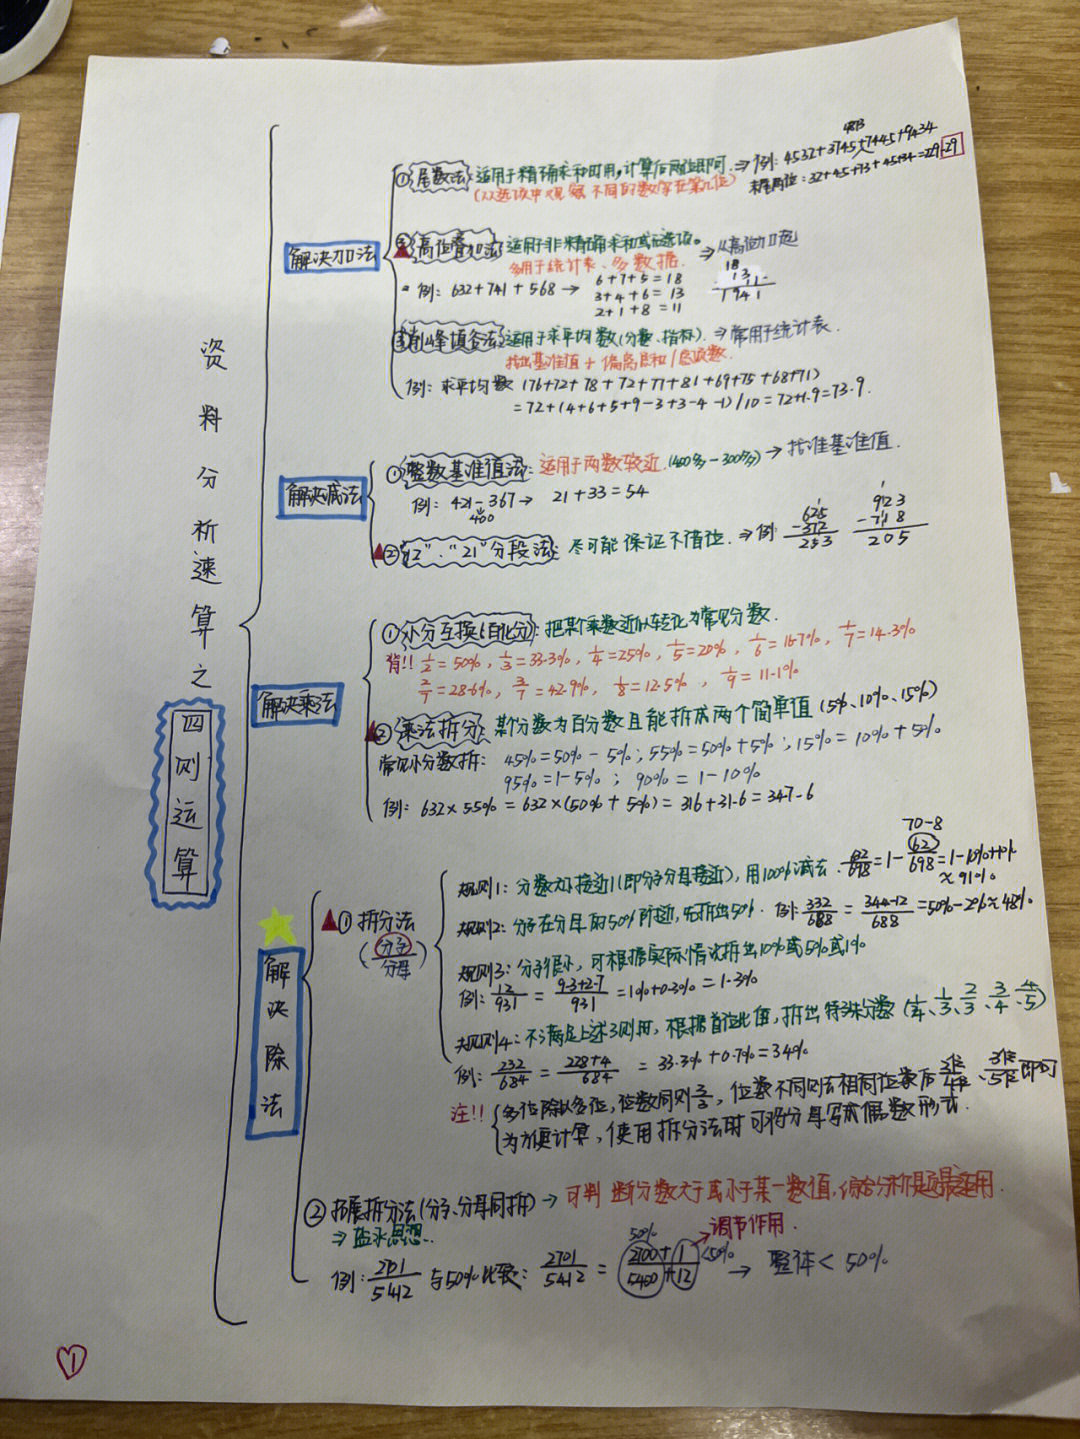 资料分析速算之
四则运算
解决加法
①尾数法:适用于精确求和时用,计算后两位即可.⇒例:4532+3745+7445+9434
(从选项中观察不同的数字在第几位)
末尾两位:32+45+73+45+34=229→29
②高位叠加法:适用于非精确求和或选项。⇒从高位加起
多用于统计表、多数据.
例:632+741+568→
6+7+5=18
3+4+6=13
2+1+8=11
18
13
11
1941
③削峰填谷法:适用于求平均数(分数、指标).⇒常用于统计表.
找出基准值+偏离总和/总项数.
例:求平均数(76+72+78+72+77+81+69+75+68+71)
=72+(4+6+5+9-3+3-4-1)/10=72+1.9=73.9.
解决减法
①整数基准值法:适用于两数较近.(400多-300多)→找准基准值.
例:421-367→ 21+33=54
400
②"12"、"21"分段法:尽可能保证不借位.⇒例:
625
-372
253
923
-718
205
解决乘法
①小分互换(百化分):把某个乘数近似转化为常见分数.
背!! 1/2=50%,1/3=33.3%,1/4=25%,1/5=20%,1/6=16.7%,1/7=14.3%
2/7=28.6%,3/7=42.9%,1/8=12.5%,1/9=11.1%
②乘法拆分:某个分数为百分数且能拆成两个简单值(5%、10%、15%)
常见小分数拆:45%=50%-5%;55%=50%+5%;15%=10%+5%
95%=1-5%;90%=1-10%
例:632×55%=632×(50%+5%)=316+31.6=347.6
解决除法
①拆分法
(分子/分母)
70-8
规则1:分数大小接近1(即分子分母接近),用100%减去.632/698=1-62/698=1-10%+1%
≈91%
规则2:分子在分母的50%附近,先拆出50%.例:332/688=344-12/688=50%-2%≈48%
规则3:分子很小,可根据实际情况拆出10%或5%或1%
例:12/931=9.3+2.7/931=1%+0.3%=1.3%
规则4:不满足上述3则时,根据首位比值,拆出特殊分数(1/4、1/3、2/3、3/4、4/5)
例:232/684=228+4/684=33.3%+0.7%=34%
注!! 多位除以多位,位数同则3/3,位数不同则去相同位数后3位/4位、3位/5位即可
为方便计算,使用拆分法时可将分母写成偶数形式.
②拓展拆分法(分子、分母同拆)→可判断分数大于或小于某一数值,综合分析题最适用.
⇒盐水思想.
50% →调节作用.
例:2701/5412与50%比较:2701/5412=2700+1/5400+12 <50% → 整体<50%
1